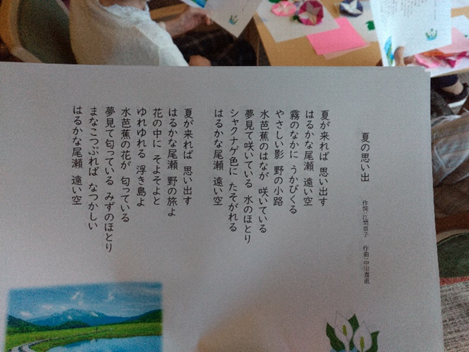 夏の思い出
作詞:江間章子 作曲:中田喜直
夏が来れば 思い出す
はるかな尾瀬 遠い空
霧のなかに うかびくる
やさしい影 野の小路
水芭蕉のはなが 咲いている
夢見て咲いている 水のほとり
シャクナゲ色に たそがれる
はるかな尾瀬 遠い空
夏が来れば 思い出す
はるかな尾瀬 野の旅よ
花の中に そよそよと
ゆれゆれる 浮き島よ
水芭蕉の花が 匂っている
夢見て匂っている みずのほとり
まなこつぶれば なつかしい
はるかな尾瀬 遠い空